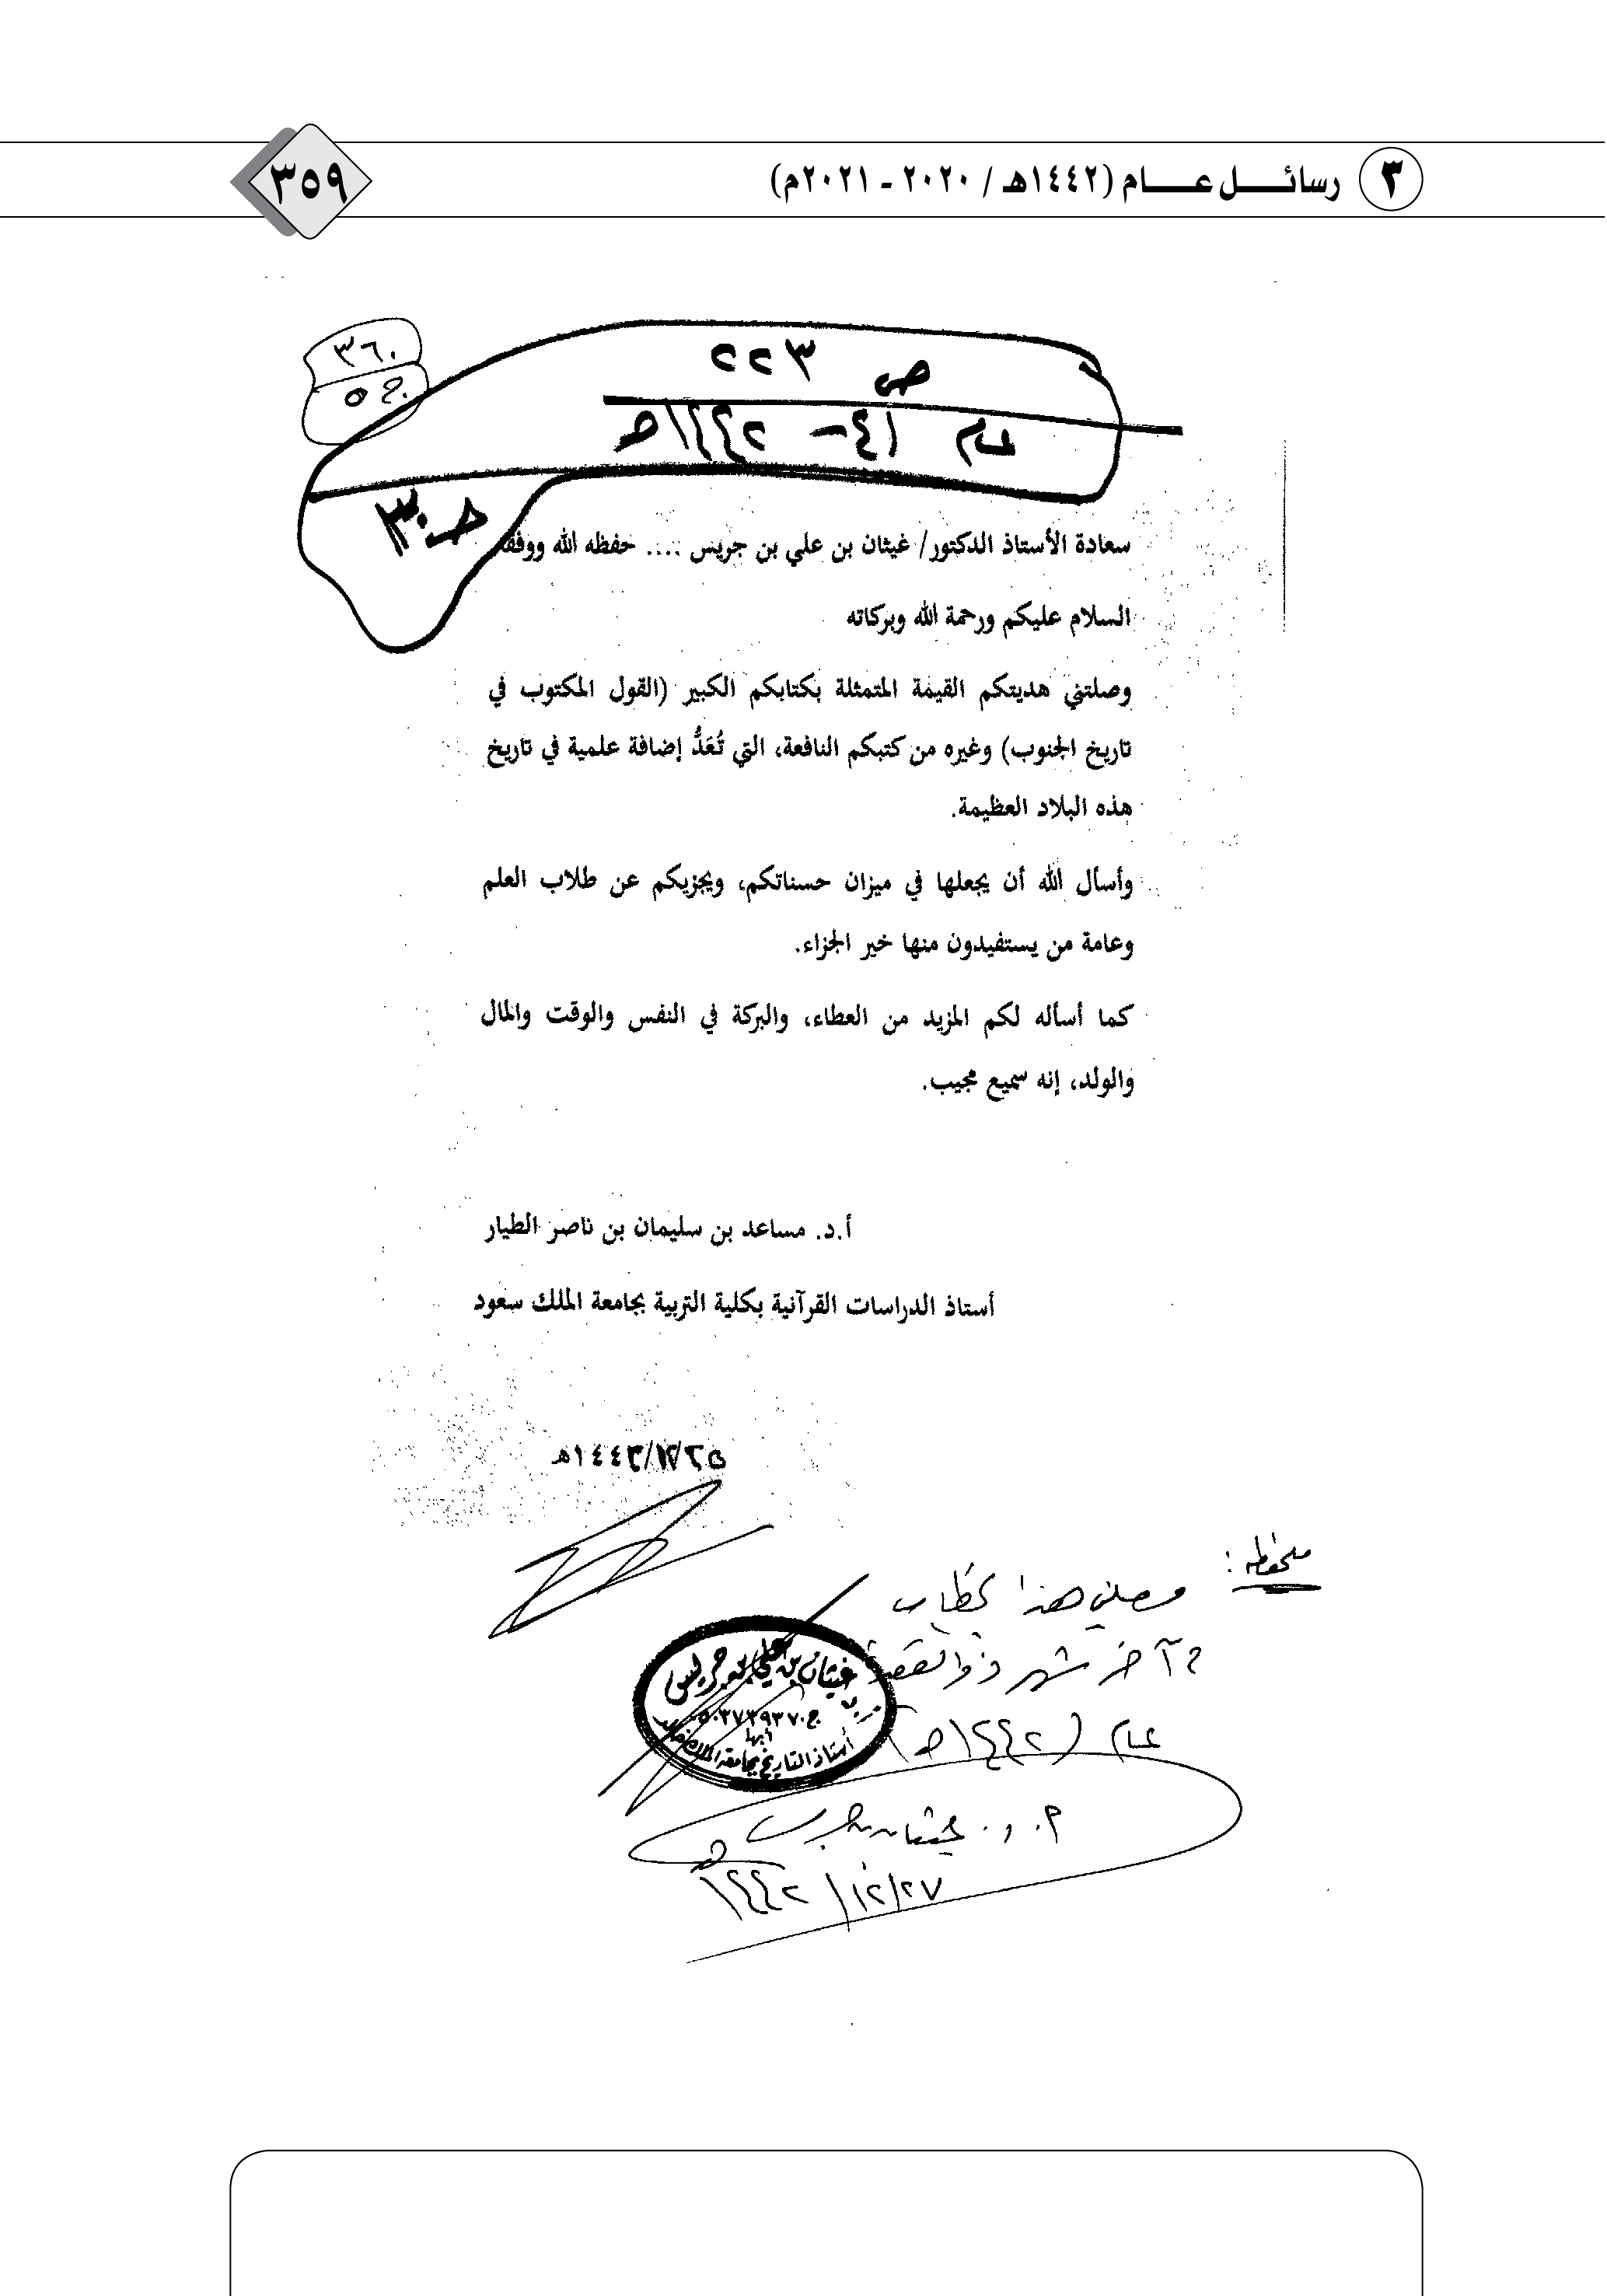 ٣ رسائل عام (١٤٤٢هـ / ٢٠٢٠ - ٢٠٢١م) ٣٥٩
٣٦٠
ج ٥
ص ٢٢٣
عام ٤١ - ١٤٤٢هـ
سعادة الأستاذ الدكتور/ غيثان بن علي بن جريس .... حفظه الله ووفقه
السلام عليكم ورحمة الله وبركاته
وصلتني هديتكم القيمة المتمثلة بكتابكم الكبير (القول المكتوب في
تاريخ الجنوب) وغيره من كتبكم النافعة، التي تُعَدُّ إضافة علمية في تاريخ
هذه البلاد العظيمة.
وأسأل الله أن يجعلها في ميزان حسناتكم، ويجزيكم عن طلاب العلم
وعامة من يستفيدون منها خير الجزاء.
كما أسأله لكم المزيد من العطاء، والبركة في النفس والوقت والمال
والولد، إنه سميع مجيب.
أ.د. مساعد بن سليمان بن ناصر الطيار
أستاذ الدراسات القرآنية بكلية التربية بجامعة الملك سعود
ملحظه :
وصلني هذا الخطاب
في آخر شهر ذو القعدة
عام (١٤٤٢هـ)
غيثان بن علي بن جريس
ج ٠٥٠٣٧٣٩٣٧٠
أبها
أستاذ التاريخ بجامعة الملك خالد
أ. د. غيثان بن جريس
٢٧/١٢/١٤٤٢هـ